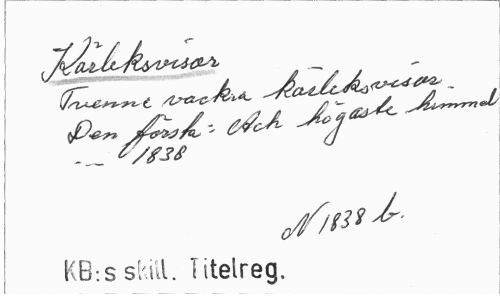 Kärleksvisor
Tvenne vackra kärleksvisor.
Den första: Ach högaste himmel
--- 1838
N 1838 b.
KB:s skill. Titelreg.